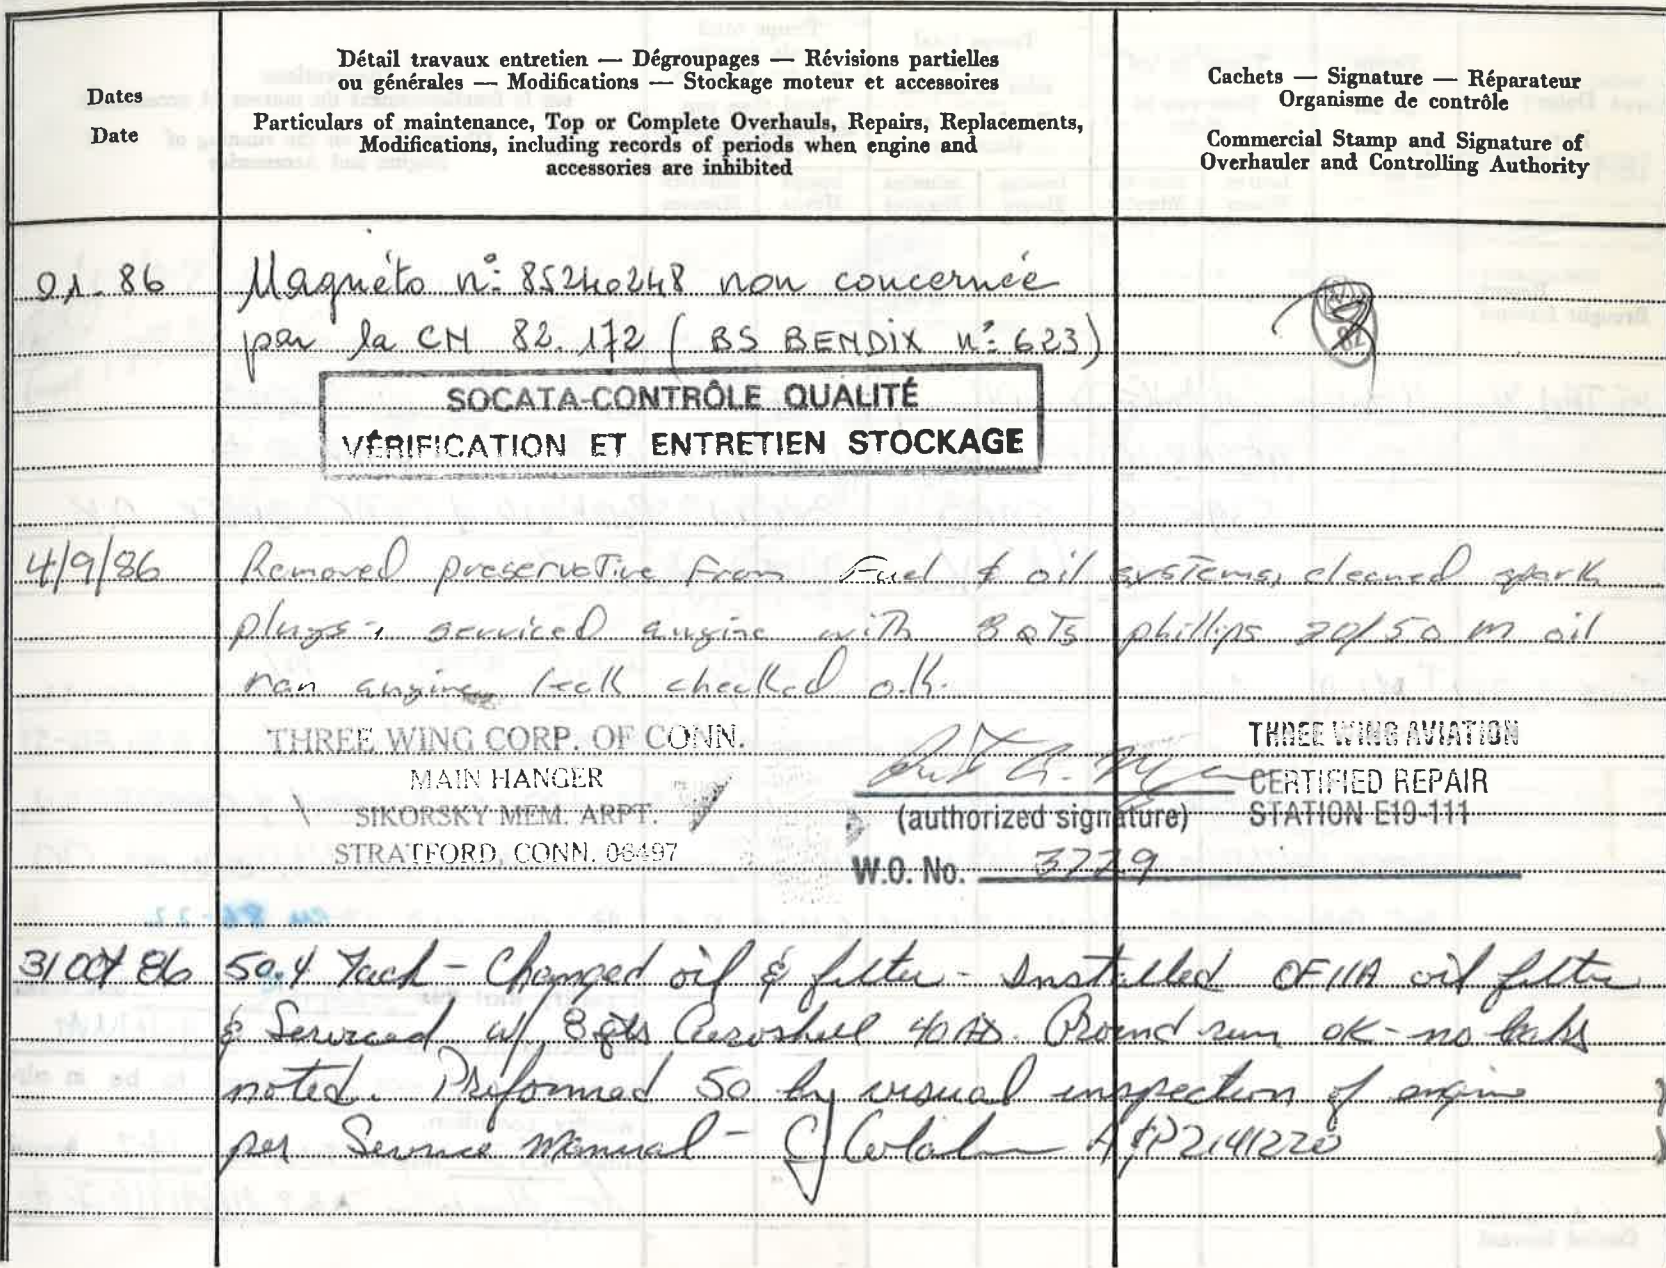 Dates
Date
Détail travaux entretien — Dégroupages — Révisions partielles
ou générales — Modifications — Stockage moteur et accessoires
Particulars of maintenance, Top or Complete Overhauls, Repairs, Replacements,
Modifications, including records of periods when engine and
accessories are inhibited
Cachets — Signature — Réparateur
Organisme de contrôle
Commercial Stamp and Signature of
Overhauler and Controlling Authority
01-86 Magnéto n° 85240248 non concernée
par la CN 82.172 (BS BENDIX n° 623)
SOCATA-CONTRÔLE QUALITÉ
VÉRIFICATION ET ENTRETIEN STOCKAGE
4/9/86 Removed preservative from Fuel & oil systems, cleaned spark
plugs, serviced engine with 8 qTs phillips 20/50 m oil
ran engine leak checked o.k.
THREE WING CORP. OF CONN.
MAIN HANGER
SIKORSKY MEM. ARPT.
STRATFORD, CONN. 06497
(authorized signature)
W.O. No. 3729
THREE WING AVIATION
CERTIFIED REPAIR
STATION E19-111
31 OCT 86 50.4 Tach - Changed oil & filter - Installed CF11A oil filter
& Serviced w/ 8 qts Aeroshell 40 AD. Ground run OK - no leaks
noted. Preformed 50 hr visual inspection of engine
per Service Manual - A&P 2141220